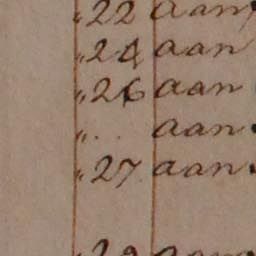 „ 22 aan
„ 24 aan
„ 26 aan
„ . . aan
„ 27 aan